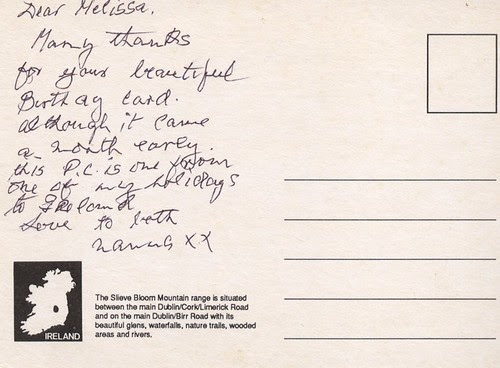 Dear Melissa.
Many thanks
for your beautiful
Birthday card.
although it came
a month early.
this P.C. is one from
one of my holidays
to Ireland
Love to both
xx
IRELAND
The Slieve Bloom Mountain range is situated
between the main Dublin/Cork/Limerick Road
and on the main Dublin/Birr Road with its
beautiful glens, waterfalls, nature trails, wooded
areas and rivers.